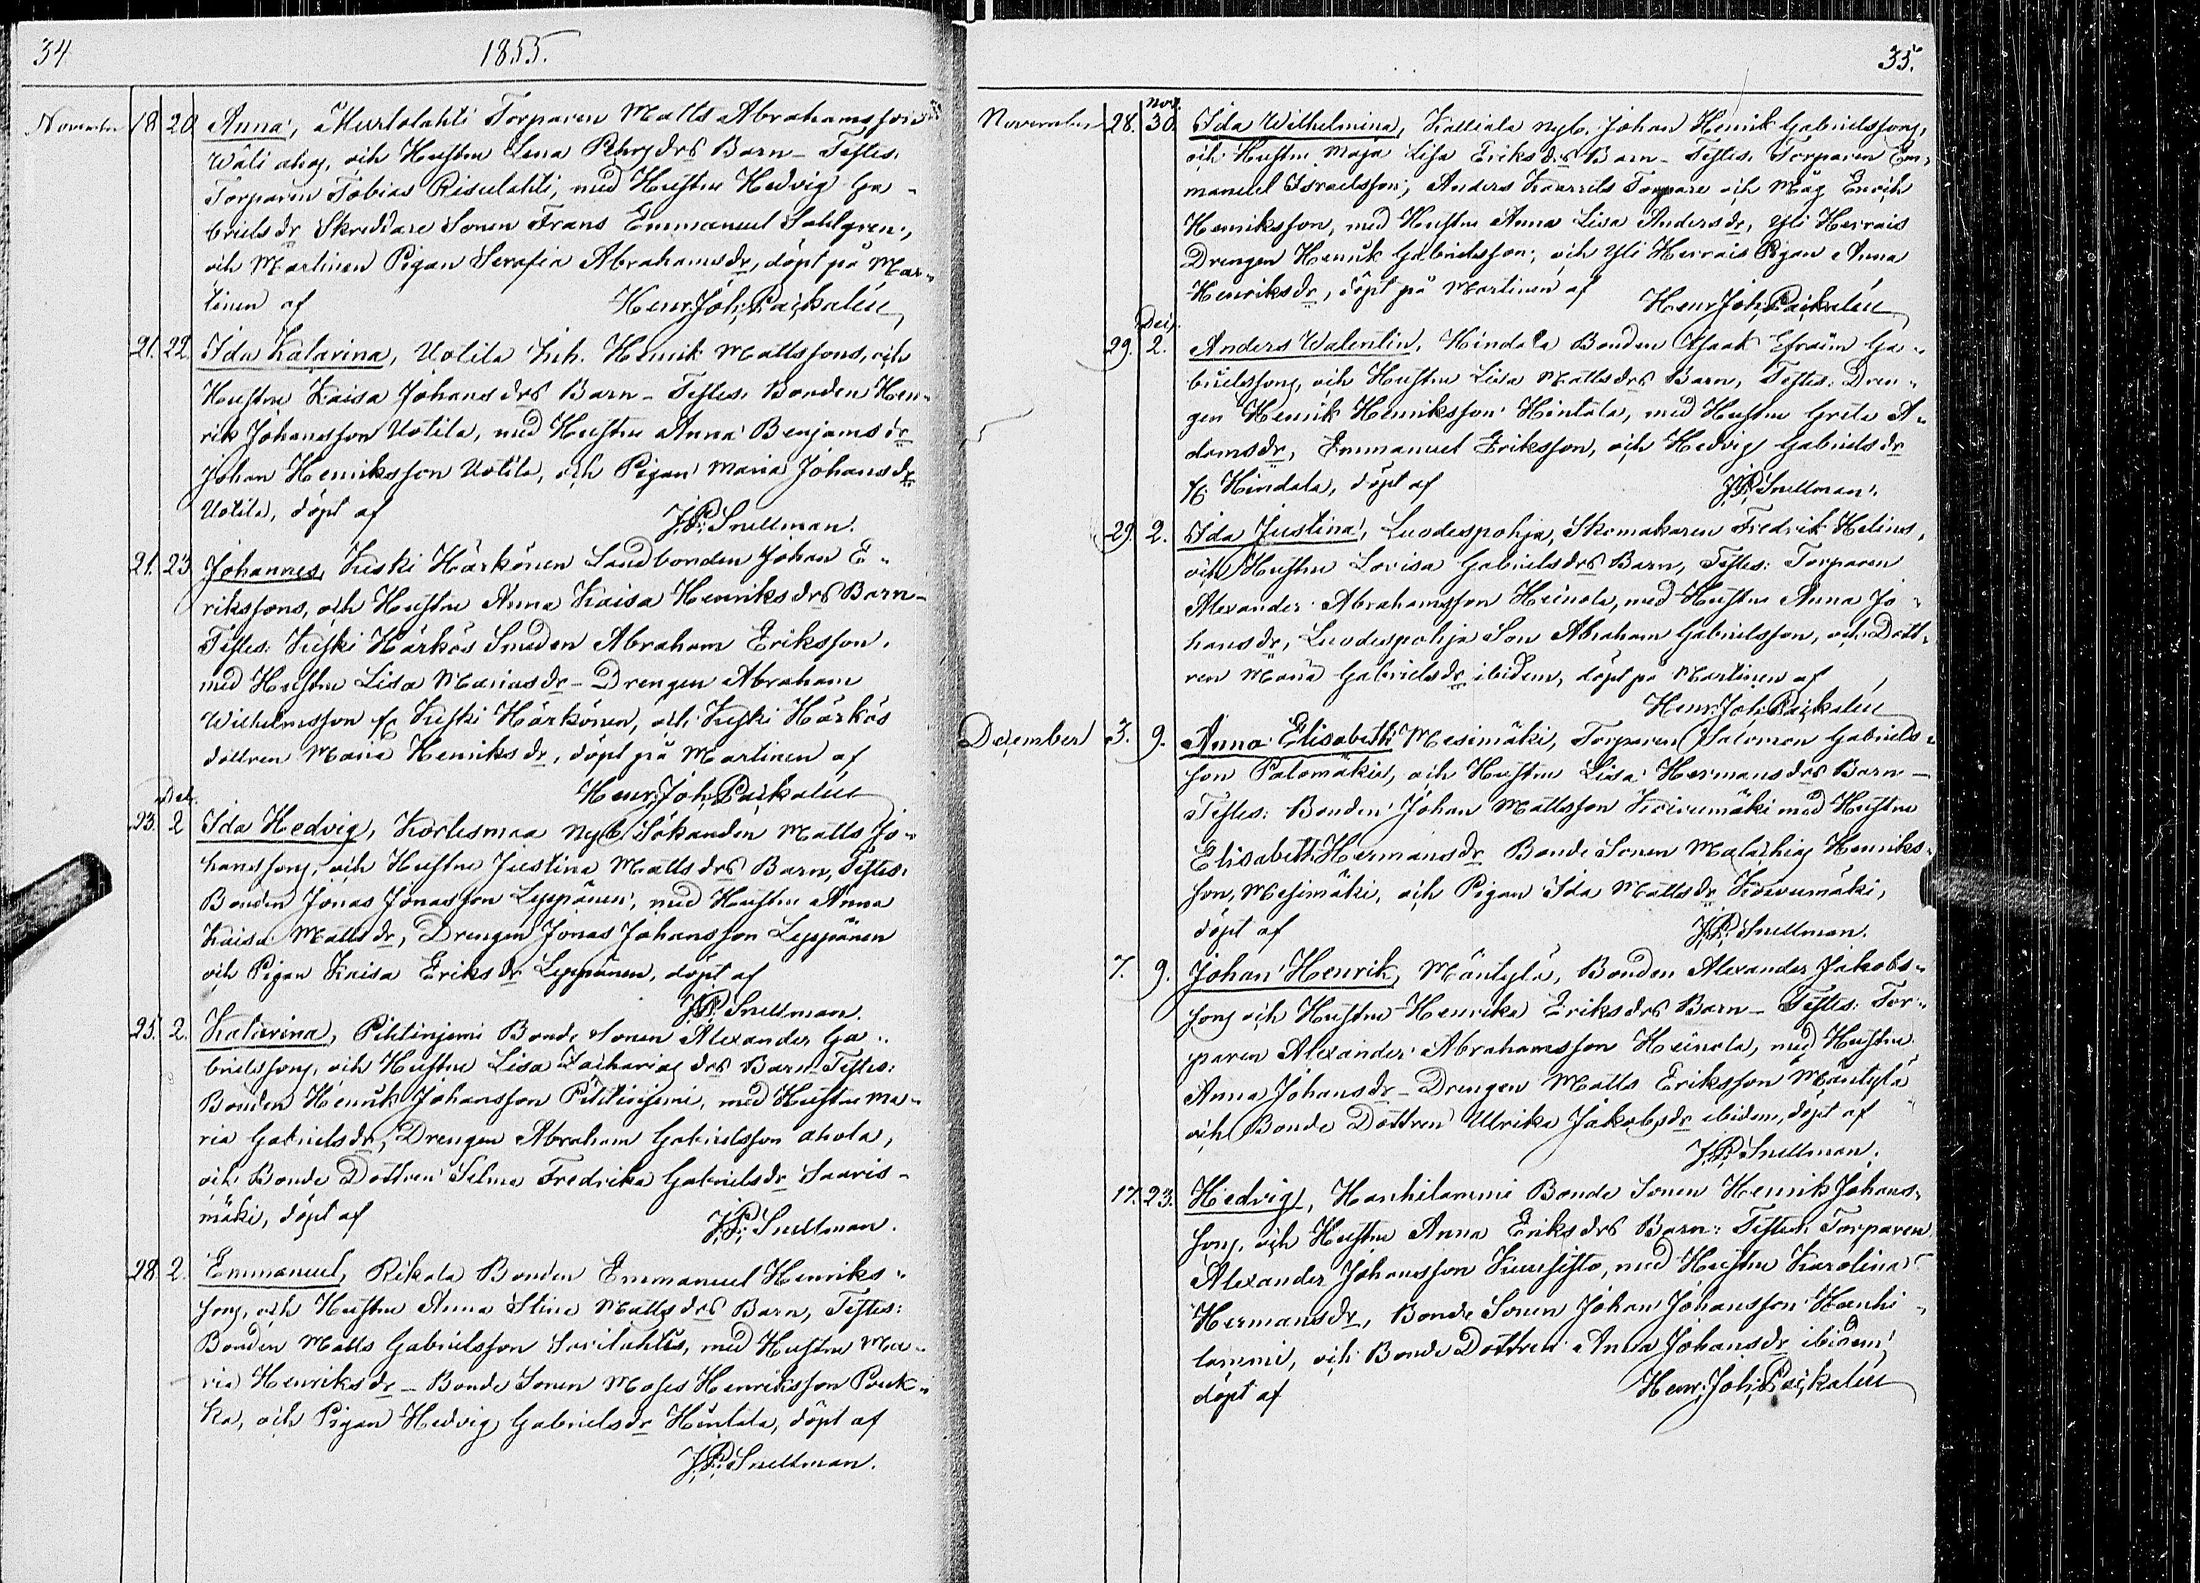 34
1855.
November 18 20 Anna, Murtolahti Torparen Matts Abrahamsson
Wäli aho, och Hustru Lena Pehrsdrs Barn – Testes:
Torparen Tobias Risulahti, med Hustru Hedvig Ga-
brielsdr Skreddare Sonen Frans Emmanuel Sahlgren,
och Martinen Pigan Serafia Abrahamsdr, döpt på Mar-
tinen af Henr. Joh. Paçkalén
21. 22. Ida Katarina, Uotila Inh. Henrik Mattssons, och
Hustru Kaisa Johansdrs Barn – Testes: Bonden Hen-
rik Johansson Uotila, med Hustru Anna Benjamsdr
Johan Henriksson Uotila, och Pigan Maria Johansdr
Uotila, döpt af J.P. Snellman.
21. 23 Johannes, Kuski Härkönen Landbonden Johan E-
rikssons, och Hustru Anna Kaisa Henriksdrs Barn –
Testes: Kuski Härkös Smeden Abraham Eriksson,
med Hustru Lisa Mariasdr – Drengen Abraham
Wilhelmsson fr Kuski Härkönen, och Kuski Härkös
dottren Maria Henriksdr, döpt på Martinen af
Henr. Joh. Paçkalén
Dec.
23. 2 Ida Hedvig, Korkesmaa Nyb. Sökanden Matts Jo-
hanssons, och Hustru Justina Mattsdrs Barn, Testes:
Bonden Jonas Jonasson Leppänen, med Hustru Anna
Kaisa Mattsdr, Drengen Jonas Johansson Leppänen
och Pigan Kaisa Eriksdr Leppänen, döpt af
J.P. Snellman.
25. 2. Katarina, Pihtinjemi Bonde Sonen Alexander Ga-
brielssons, och Hustru Lisa Zachariasdrs Barn Testes:
Bonden Henrik Johansson Pihtinjemi, med Hustru Ma-
ria Gabrielsdr, Drengen Abraham Gabrielsson Ahola,
och Bonde Dottren Selma Fredrika Gabrielsdr Saaris-
mäki, döpt af J.P. Snellman.
28. 2. Emmanuel, Rikala Bonden Emmanuel Henriks-
sons, och Hustru Anna Stina Mattsdrs Barn, Testes:
Bonden Matts Gabrielsson Savilahti, med Hustru Ma-
ria Henriksdr – Bonde Sonen Moses Henriksson Pouk-
ka, och Pigan Hedvig Gabrielsdr Hintala, döpt af
J.P. Snellman.
35.
Nov.
November 28. 30. Ida Wilhelmina, Kattiala Nyb. Johan Henrik Gabrielssons,
och Hustru Maja Lisa Eriksdrs Barn – Testes: Torparen Em-
manuel Israelsson, Anders Torpare och Måg Enoch
Henriksson, med Hustru Anna Lisa Andersdr, Yli Herrais
Drengen Henrik Gabrielsson, och Yli Herrais Pigan Anna
Henriksdr, döpt på Martinen af Henr. Joh. Paçkalén
Dec.
29. 2. Anders Walentin, Hindala Bonden Isaak Efraim Ga-
brielssons, och Hustru Lisa Mattsdrs Barn, Testes: Dren-
gen Henrik Henriksson Hintala, med Hustru Greta A-
damsdr, Emmanuel Eriksson, och Hedvig Gabrielsdr
fr Hindala, döpt af J.P. Snellman.
29. 2. Ida Justina, Luodespohja, Skomakaren Fredrik Helins,
och Hustru Lovisa Gabrielsdrs Barn, Testes: Torparen
Alexander Abrahamsson Heinola, med Hustru Anna Jo-
hansdr, Luodespohja Son Abraham Gabrielsson, och Dott-
ren Maria Gabrielsdr ibidem, döpt på Martinen af
Henr. Joh. Paçkalén
December 3. 9. Anna Elisabeth Mesimäki, Torparen Salomon Gabriels-
son Palomäkis, och Hustru Lisa Hermansdrs Barn –
Testes: Bonden Johan Mattsson Koivumäki med Hustru
Elisabeth Hermansdr Bonde Sonen Malachias Henriks-
son, Mesimäki, och Pigan Ida Mattsdr Koivumäki,
döpt af J.P. Snellman.
7. 9. Johan Henrik, Mäntylä, Bonden Alexander Jakobs-
sons och Hustru Henrika Eriksdrs Barn – Testes: Tor-
paren Alexander Abrahamsson Heinola, med Hustru
Anna Johansdr – Drengen Matts Eriksson Mäntylä
och Bonde Dottren Ulrika Jakobsdr ibidem, döpt af
J.P. Snellman.
17. 23. Hedvig, Hanhilammi Bonde Sonen Henrik Johans-
sons, och Hustru Anna Eriksdrs Barn: Testes: Torparen
Alexander Johansson Kuusisto, med Hustru Karolina
Hermansdr, Bonde Sonen Johan Johansson Hanhi-
lammi, och Bonde Dottren Anna Johansdr ibidem,
döpt af Henr. Joh. Paçkalén